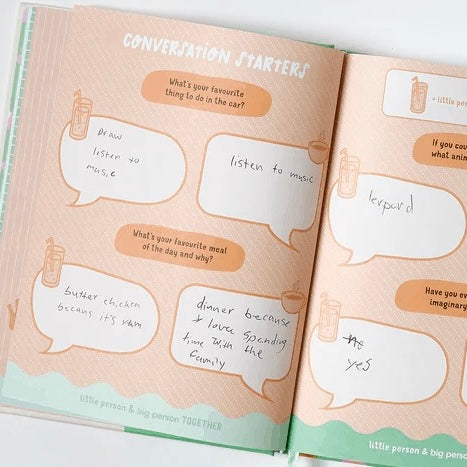 CONVERSATION STARTERS
What's your favourite
thing to do in the car?
Draw
listen to
music
listen to music
What's your favourite meal
of the day and why?
butter chicken
becaus it's yum
dinner because
I love spending
time with the
family
little person & big person TOGETHER
= little pers
If you cou
what anim
lerpard
Have you ev
imaginary
yes
little person & big perso